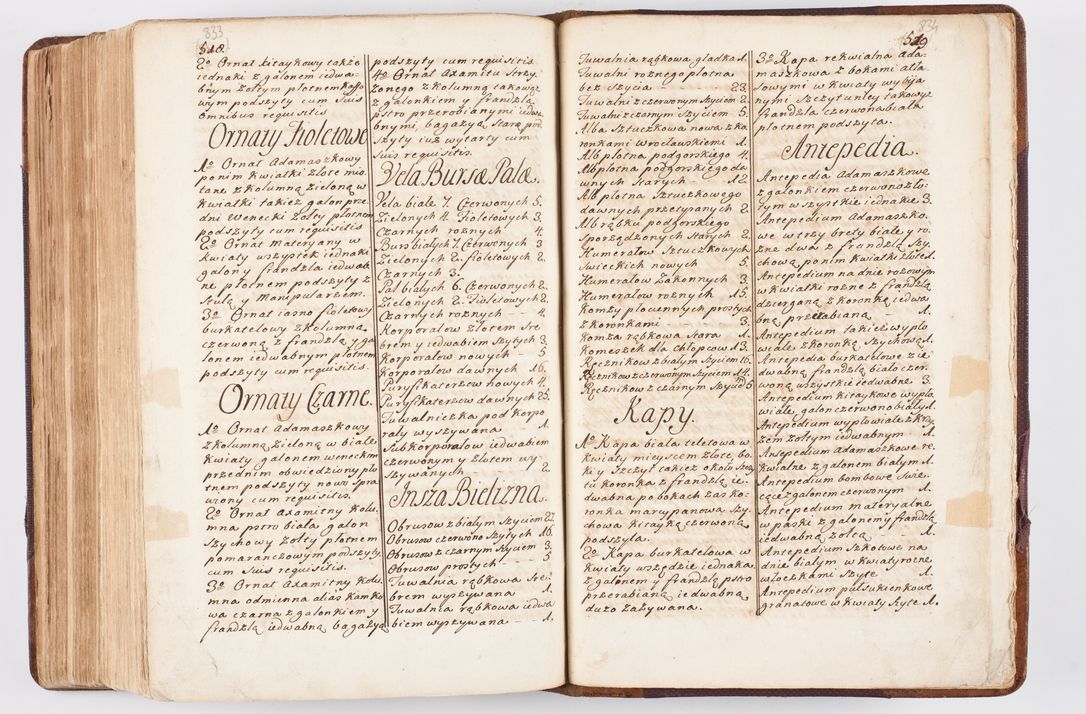 833
518.
2º Ornat kitaykowy także
iednaki z galonem iedwa-
bnym żołtym płotnem kaffo
wym podszyty cum suis
omnibus requisitis
Ornaty Fioletowe
1º Ornat Adamaszkowy
ponim kwiatki złote mio-
tane z kolumną zieloną w
kwiatki takież galon prze-
dni wenecki żołty płotnem
podszyty cum requisitis
2º Ornat materyany w
kwiaty wszystek iednaki
galony frandzla iedwab
ne płotnem podszyty z
stulą y Manipularzem.
3º Ornat iasno fioletowy
burkatelowy z kolumną
czerwoną z frandzlą y ga
lonem iedwabnym płotnem
podszyty cum requisitis.
Ornaty Czarne.
1º Ornat Adamaszkowy
z kolumną zieloną w białe
kwiaty galonem weneckim
przednim obwiedziony pło
tnem podszyty nowo spra
wiony cum requisitis.
2º Ornat Axamitny kolu-
mna pstro biała galon
szychowy żołty płotnem
pomaranczowym podszyty
cum suis requisitis.
3º Ornat Axamitny kolu
mna odmienna alias kamko
wa czarna z galonkiem y
frandzlą iedwabną bagażyą
podszyty cum requisitis
4º Ornat Axamitu strzy
żonego z kolumną takowąż
z galonkiem y frandzlą
pstro przerobianymi iedwa
bnymi, bagażyą starą pod
szyty iuż wytarty cum
suis requisitis.
Vela Bursæ Palæ.
Vela białe 7. Czerwonych 5.
Zielonych 4. Fioletowych 3.
Czarnych rożnych 4.
Burs białych 7. Czerwonych 3
Zielonych 2. fioletowych 2.
Czarnych 3.
Pal białych 6. Czerwonych 2.
Zielonych 2. Fioletowych 2.
Czarnych rożnych 4.
Korporałow złotem sre
brem y iedwabiem szytych 3.
Korporałow nowych 5
Korporałow dawnych 16.
Puryfikaterzow nowych 4.
Puryfikaterzow dawnych 25.
Tuwalniczka pod korpo
rały wyszywana 1.
Subkorporałow iedwabiem
czerwonym y złotem wy-
szywanych 2.
Insza Bielizna.
Obrusow z białym szyciem 27.
Obrusow czerwono szytych 16.
Obrusow z czarnym szyciem 3.
Obrusow prostych 5
Tuwalnia rąbkowa sre-
brem wyszywana 1.
Tuwalnia rąbkowa iedwa
biem wyszywana 1.
834
519
Tuwalnia rąbkowa gładka 1.
Tuwalni rożnego płotna
bez szycia 23.
Tuwalni z czerwonym szyciem 2.
Tuwalni z czarnym szyciem 5.
Alba sztuczkowa nowa z ka
ronkami wrocławskiemi 1.
Alb płotna podgorskiego 4.
Alb płotna podgorskiego da
wnych starych 12.
Alb płotna sztuczkowego
dawnych przetyranych 2.
Alb rąbku podgorskiego
sporządzonych starych 2.
Humerałow sztuczkowych
swieckich nowych 5.
Humerałow Zakonnych 3.
Humerałow rożnych 15.
Komży płociennych prostych
z koronkami 3.
Komża rąbkowa stara 1.
Komeszek dla Chłopcow 13.
Ręcznikow z białym szyciem 16.
Ręcznikow z czerwonym szyciem 14.
Ręcznikow z czarnym szyciem 6
Kapy.
1º Kapa biała teletowa w
kwiaty mieyscem złote, bo-
ki y szczyt takież około szczy
tu koronka z frandzlą ie-
dwabna po bokach zas ko-
ronka marcypanowa szy-
chowa kitayką czerwoną
podszyta.
2º Kapa burkatelowa w
kwiaty wszędzie iednaka
z galonem y frandzlą pstro
przerabianą iedwabną
dużo zażywana.
3º Kapa rekwialna Ada-
maszkowa z bokami atła-
sowymi w kwiaty wybija
nymi szczyt u niey takowyż
frandzla czerwona biała
płotnem podszyta.
Antepedia.
Antepedia Adamaszkowe
z galonkiem czerwono żło-
tym wszystkie iednakie 3.
Antepedium Adamaszko-
we w trzy brety białe y ro-
żne dwa z frandzlą szy-
chową ponim kwiatki złote 1.
Antepedium na dnie rożowym
w kwiatki rożne z frandzlą
dzierganą z koronką iedwa
bną przetabianą 1.
Antepedium takież wypło
wiałe z koronką szychową 1.
Antepedia burkatelowe z ie
dwabną frandzlą biało czer-
woną wszystkie iedwabne 3.
Antepedium kitaykowe wypło
wiałe, galon czerwono biały 1.
Antepedium wypłowiałe z krzy
żem żołtym iedwabnym 1.
Antepedium Adamaszkowe re-
kwialne z galonem białym 1.
Antepedium bombowe swie-
cące z galonem czerwonym 1.
Antepedium materyalne
w paski z galonem y frandzlą
iedwabną żołtą 1.
Antepedium szkotowe na
dnie białym w kwiaty rożne
włoczkami szyte 1.
Antepedium pułsukienkowe
granatowe w kwiaty szyte 1.